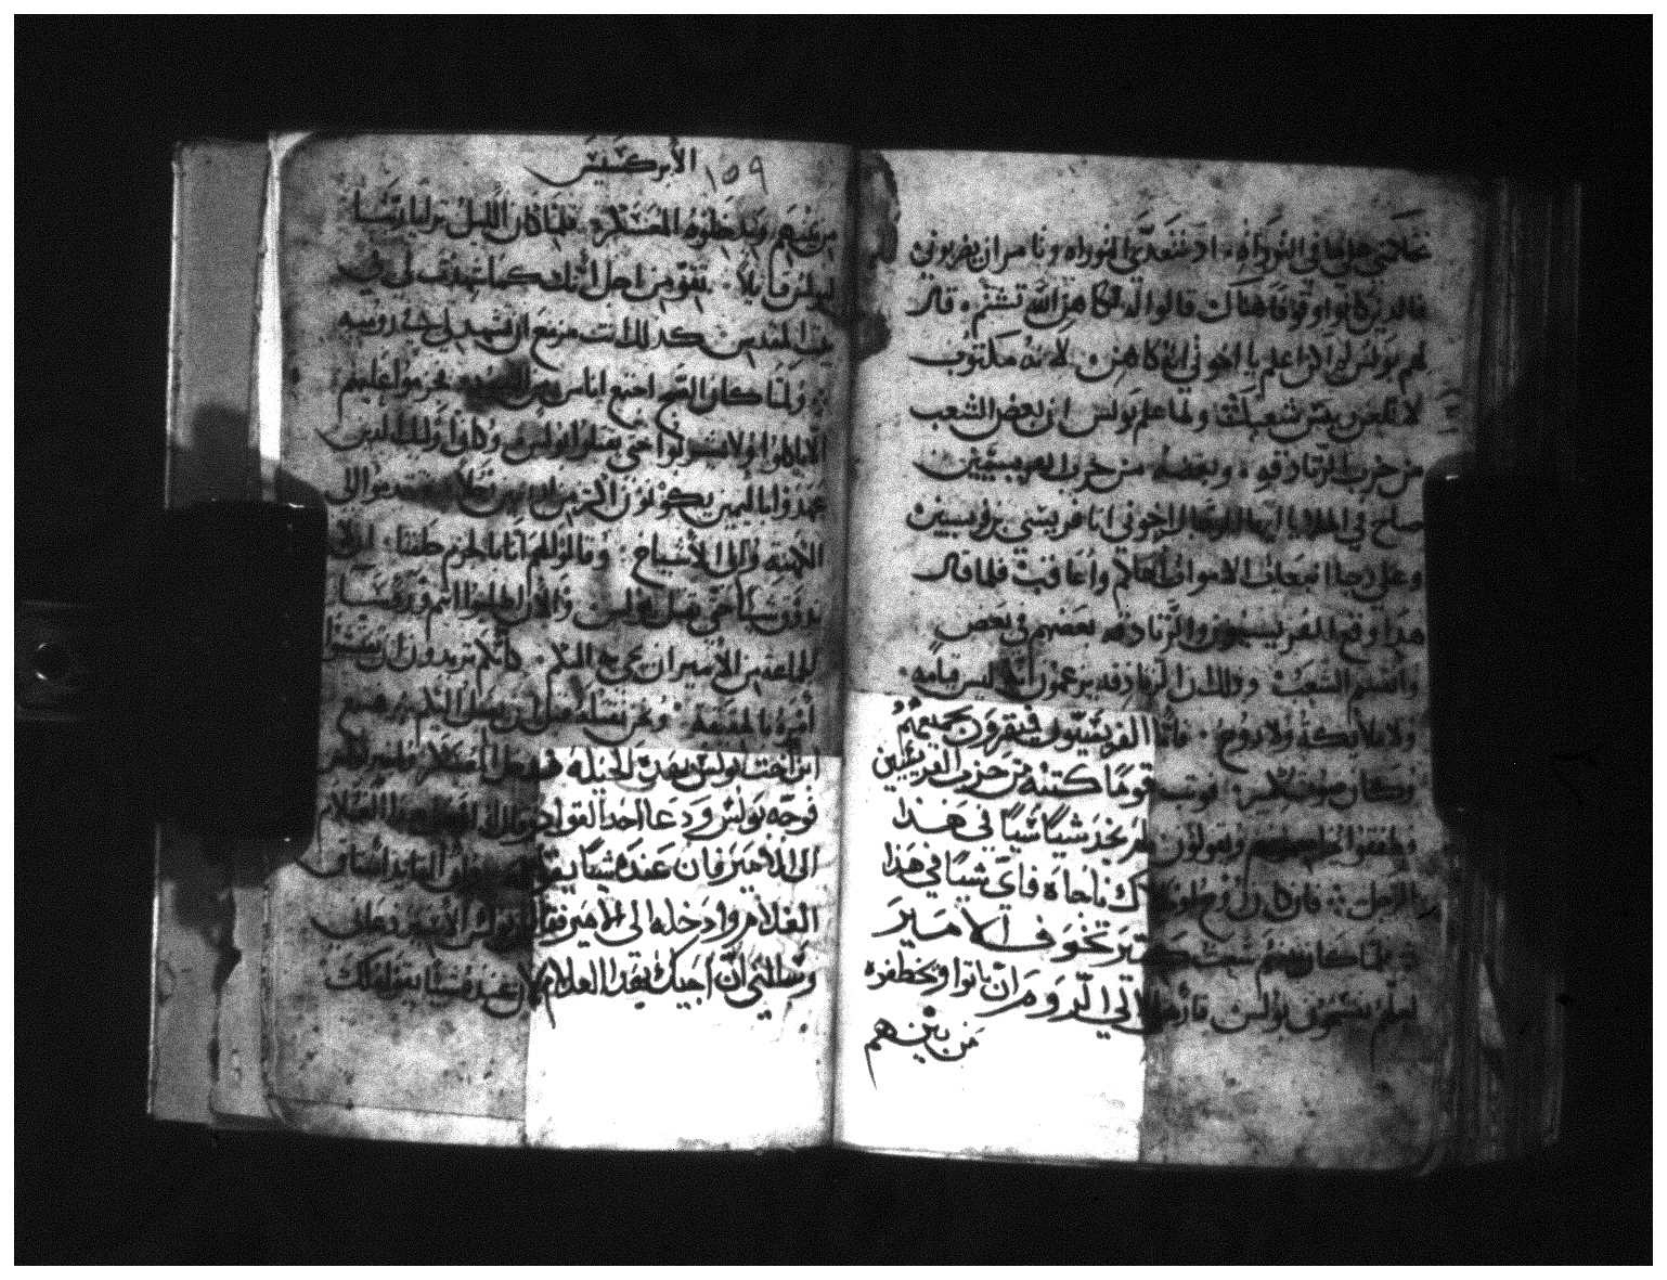 تحاكمني على ما في التوراه. اذ تتعدى التوراه وتامر ان يضربوني
فالذين كانوا وقوفا هناك قالوا له لكاهن الله تشتم. قال
لهم بولس لم اكن اعلم يا اخوتي انه كاهن. لانه مكتوب
لا تلعن ريس شعبك ولما علم بولس ان بعض الشعب
من حزب الزنادقه. وبعضه من حزب الفريسيين
صاح في ايها الرجال اخوتي انا فريسي بن فريسيين
وعلى رجا انبعاث الاموات احاكم واعاقب فلما قال
هذا وقع الفريسيون والزنادقه بعضهم في بعض
وانقسم الشعب وذلك ان الزنادقه يزعمون انه ليس قيامه.
ولا ملايكة ولا روح. فاما الفريسيون فيقرون جميعهم
وكان صوت كبير. فوثب قوما كتبه من حزب الفريسيين
ويقولون لم نجد شيا شيا في هذا
الرجل. فان كان روح او ملاك ناجاه فاي شيا في هذا
فلما كان بينهم شغب كبير تخوف الامير
لعلهم يقسمون بولس فارسل الى الروم ان ياتوا ويخطفوه
من بينهم
الابركسيس ١٥٩
من بينهم ويدخلوه المعسكر. فلما كان الليل تراءا ربنا
لبولس قايلا. تقو من اجل انك كما شهدت لي في
بيت المقدس كذلك انت مزمع ان تشهد لي في روميه
ولما كان الصبح اجتمع اناس من اليهود وحرموا عليهم
الا ياكلوا ولا يشربوا حتى يقتلوا بولس وكانوا اوليك الذين
عهدوا باليمين يكونون اكثر من اربعين رجلا فتقدموا الى
الكهنه والى الاشياخ. وقالوا لهم انا بالحرم حلفنا. ان لا
نذوق شيا حتى نقتل بولس. والان اطلبوا انتم وروسا
الجماعه من الامير ان يخرجه اليكم. كانكم تريدون ان تفتشوا
امره بالحقيقه. ونحن نقتله قبل ان يصل اليكم. فسمع
ابن اخت بولس بهذه الحيله فدخل المعسكر واخبر بولس
فوجه بولس ودعا احد القواد وقال له هذا الغلام
الى الامير فان عنده شيا يقوله له فاخذ القايد انساق
الغلام وادخله الى الامير فقال ان بولس الاسير دعاني
وسالني ان اجيك بهذا الغلام لان عنده شيئا يقوله لك